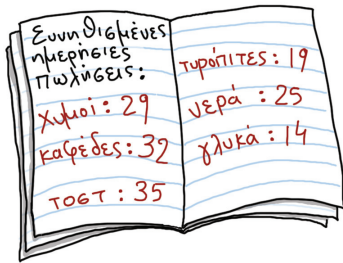 Συνηθισμένες
ημερήσιες
πωλήσεις:
χυμοί: 29
καφέδες: 32
τοστ: 35
τυρόπιτες: 19
νερά: 25
γλυκά: 14